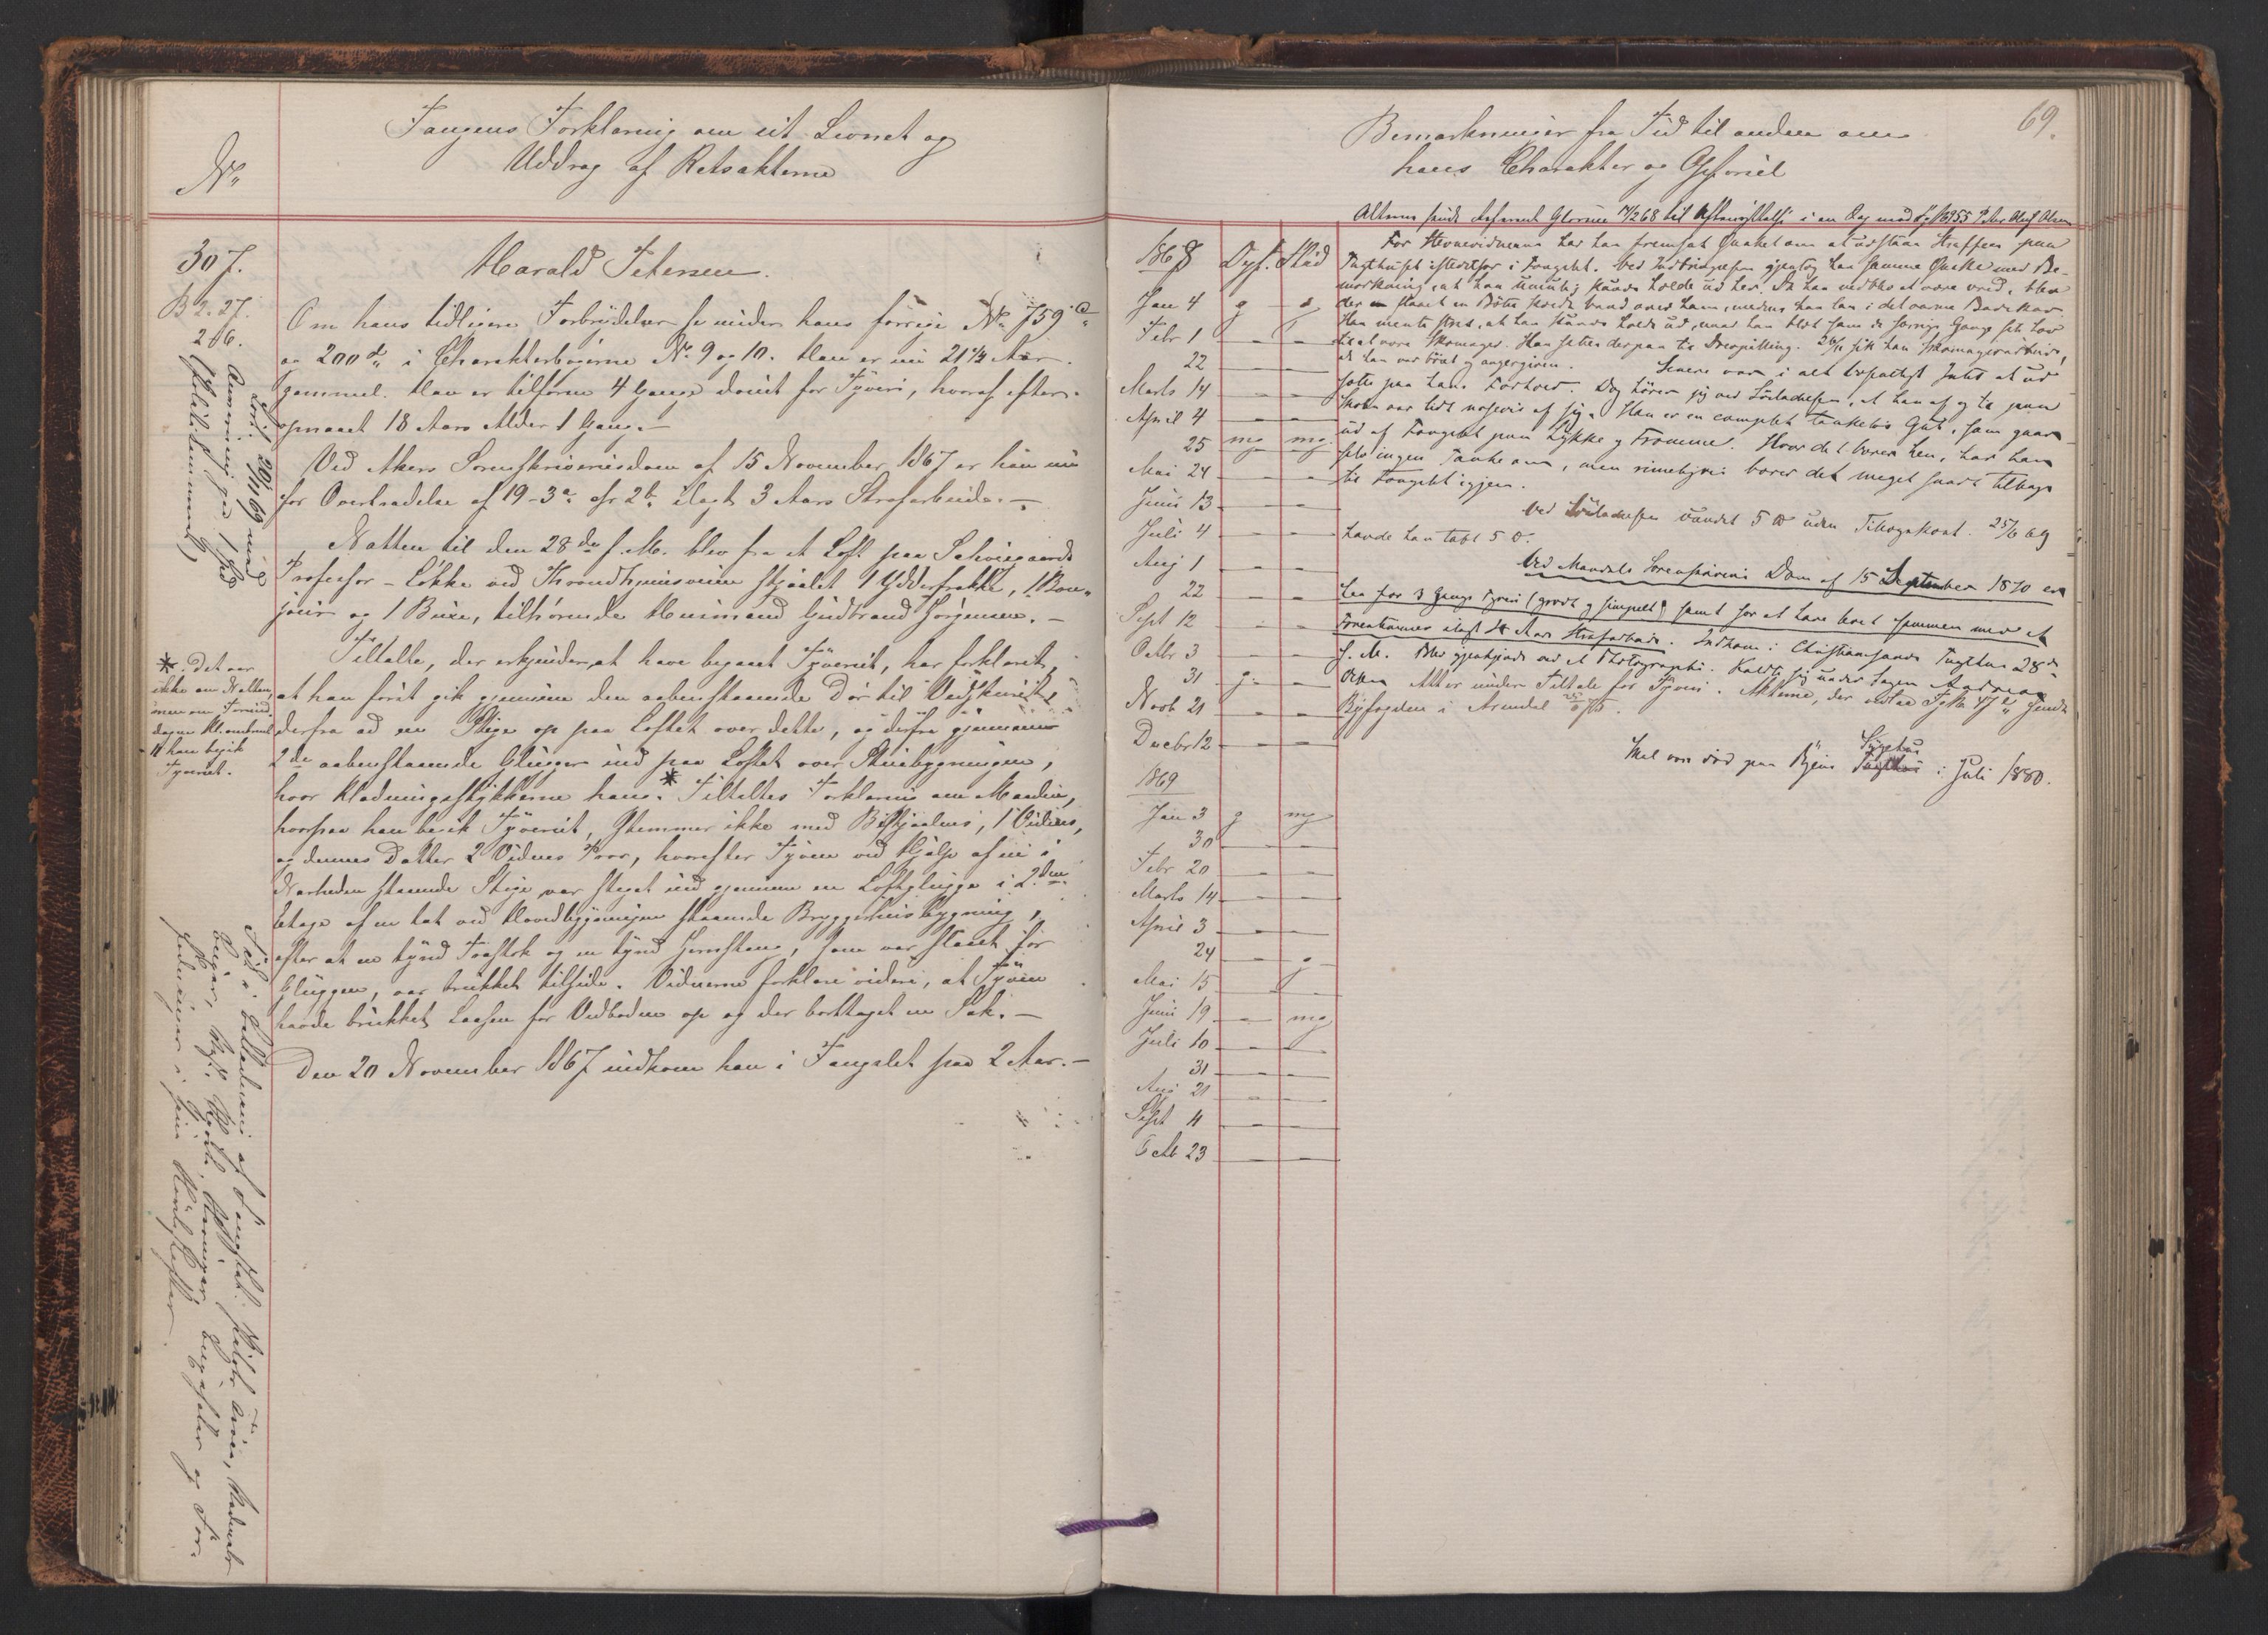 Fangens Forklaring om sit Levnet og
Uddrag af Retsakterne
No
307.
B 2. 27.
206.
Harald Petersen.
Om hans tidligere Forbrydelser se under hans forrige No 759 c
og 200 d i Charakterbøgerne No 9 og 10. Han er nu 21 3/4 Aar
gammel. Han er tilforn 4 Gange dømt for Tyveri, hvoraf efter
opnaaet 18 Aars Alder 1 Gang.—
Ved Akers Sorenskriveriesdom af 15 November 1867 er han nu
for Overtrædelse af 19-3 a cfr 2 b ilagt 3 Aars Strafarbeide.—
Natten til den 28de f. M. blev fra et Loft paa Schwiegaards
Professor-Løkke ved Throndhjemsveien stjaalet 1 Yderfrakke, 1 Bon-
jour og 1 Buxe, tilhørende Husmand Gudbrand Jørgensen.—
Tiltalte, der erkjender at have begaaet Tyveriet, har forklaret,
at han først gik gjennem den aabenstaaende Dør til Vedskuret,
derfra ad en Stige op paa Loftet over dette, og derfra gjennem
2de aabenstaaende Glugger ind paa Loftet over Stuebygningen,
hvor Klædningsstykkerne hang.* Tiltaltes Forklaring om Maaden,
hvorpaa han begik Tyveriet, stemmer ikke med Bestjaalnes, 1 Vidnes,
og dennes Datter 2 Vidnes Prov, hvorefter Tyven ved Hjælp af en i
Nærheden staaende Stige var steget ind gjennem en Loftglugge i 2den
Etage af en tæt ved Hovedbygningen staaende Bryggerhusbygning,
efter at en tynd Træstok og en tynd Jernstang, som var slaaet for
Gluggen, var brukket tilside. Vidnerne forklare videre, at Tyven
havde brukket Laasen for Vedboden op og der borttaget en Sæk.—
Den 20 November 1867 indkom han i Fængslet paa 2 Aar.—
* Det var
ikke om Natten,
men om Formid
dagen Kl. omtrent
11 han begik
Tyveriet.
Løst 20/11 69 med
Anvisning paa 1 Spd
Fik i Belønning af Fængslet:
69.
Bemærkninger fra Tid til anden om
hans Charakter og Opførsel
For Stevnevidnerne har han fremsat Ønsket om at udstaa Straffen paa
Tugthuset istedetfor i Fængslet. Ved Indbringelsen gjentog han samme Ønske med Be-
mærkning, at han umulig kunde holde ud her. Da han vedblev at være vred, blev
der slaaet en Bøtte koldt Vand over ham, medens han laa i det varme Badekar.
Han mente strax, at han kunde holde ud, naar han blot som de forrige Gange fik Lov
til at være Skomager. Han sattes derpaa til Drevpilling. 26/11 fik han Skomagerarbeide,
da han var brav og angergiven. Senere var i alt væsentligt Intet at ud
sætte paa hans Forhold. Dog hører jeg ved Løsladelsen, at han af og til paa
Skolen var lidt næsevis af sig. Han er en complet tankeløs Gut, som gaar
ud af Fængslet paa Lykke og Fromme. Hvor det bærer hen, har han
selv ingen Tanke om, men rimeligvis bærer det meget snart tilbage
til Fængslet igjen.
Ved Løsladelsen vundet 5 ℔ uden Tillægskost. 25/6 69
havde han tabt 5 ℔.
Ved Mandals Sorenskriveries Dom af 15 September 1870 er
han for 3 Gangs Tyveri (grovt og simpelt) samt for at have levet sammen med et
Fruentimmer ilagt 4 Aars Strafarbeide. Indkom i Christiansands Tugthus 28de
s. M. Blev gjenkjendt ved et Photographi. Kaldte sig under Sagen Andreas
Olsen Atter under Tiltale for Tyveri. Akterne,
Byfogden i Arendal
Skal være død paa Byens Sygehus i Juli 1880.
1868 Opf. Flid
Jan 4 g g
Febr 1 — —
22 — —
Marts 14 — —
April 4 — —
25 mg mg
Mai 24 — —
Juni 13 — —
Juli 4 — —
Aug 1 — —
22 — —
Sept 12 — —
Octbr 3 — —
31 g. —
Novb 21 — —
Decbr 12 — —
1869
Jan 3 g mg
30 — —
Febr 20 — —
Marts 14 — —
April 3 — —
24 — g
Mai 15 — —
Juni 19 — mg
Juli 10 — —
31 — —
Aug 21 — —
Sept 11 — —
Octb 23 — —